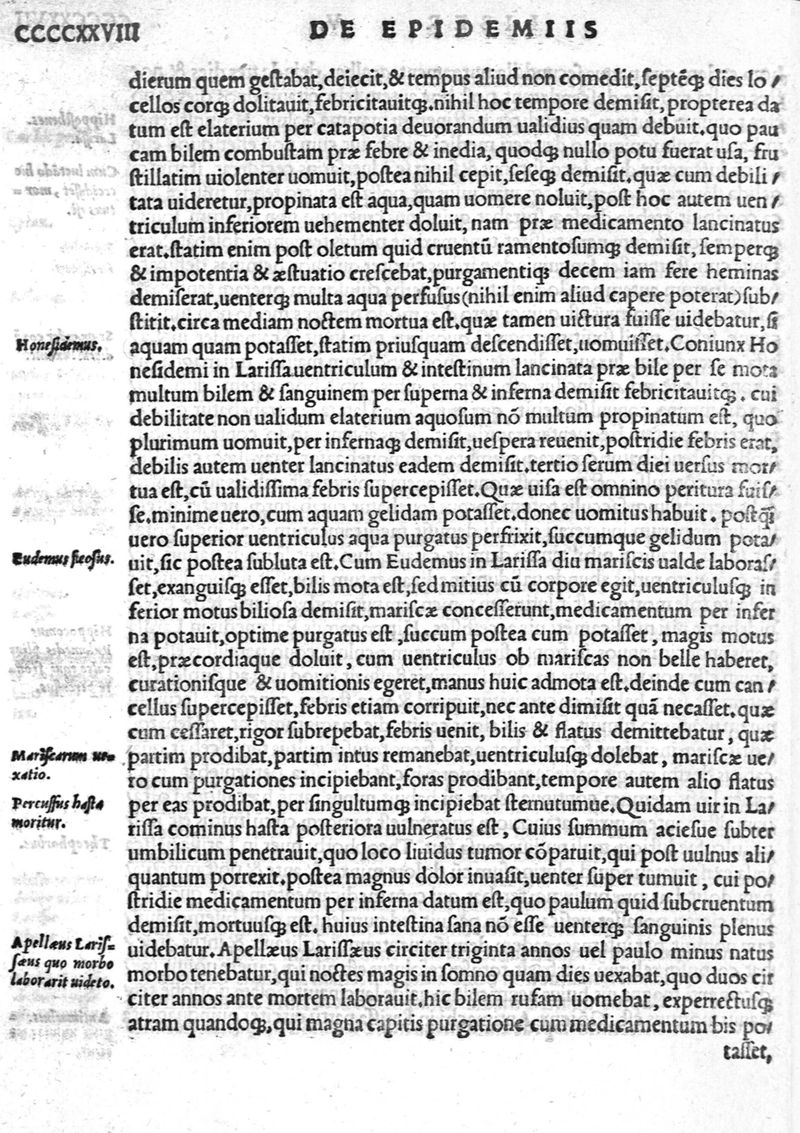 CCCCXXVIII
DE EPIDEMIIS
dierum quem geſtabat,deiecit,& tempus aliud non comedit,ſeptẽq́ꝫ dies lo⸗
cellos corq́ꝫ dolitauit,febricitauitq́ꝫ.nihil hoc tempore demiſit,propterea da
tum eſt elaterium per catapotia deuorandum ualidius quam debuit.quo pau
cam bilem combuſtam præ febre & inedia, quodq́ꝫ nullo potu fuerat uſa, fru
ſtillatim uiolenter uomuit,poſtea nihil cepit,ſeſeq́ꝫ demiſit,quæ cum debili⸗
tata uideretur,propinata eſt aqua,quam uomere noluit,poſt hoc autem uen⸗
triculum inferiorem uehementer doluit, nam præ medicamento lancinatus
erat.ſtatim enim poſt oletum quid cruentũ ramentoſumq́ꝫ demiſit, ſemperq́ꝫ
& impotentia & æſtuatio creſcebat,purgamentiq́ꝫ decem iam fere heminas
demiſerat,uenterq́ꝫ multa aqua perfuſus(nihil enim aliud capere poterat)ſub⸗
ſtitit.circa mediam noctem mortua eſt.quæ tamen uictura fuiſſe uidebatur,ſi
Honeſidemus.
aquam quam potaſſet,ſtatim priuſquam deſcendiſſet,uomuiſſet.Coniunx Ho
neſidemi in Lariſſa uentriculum & inteſtinum lancinata præ bile per ſe mota
multum bilem & ſanguinem per ſuperna & inferna demiſit febricitauitq́ꝫ. cui
debilitate non ualidum elaterium aquoſum nõ multum propinatum eſt, quo
plurimum uomuit,per infernaq́ꝫ demiſit,ueſpera reuenit,poſtridie febris erat,
debilis autem uenter lancinatus eadem demiſit.tertio ſerum diei uerſus mor⸗
tua eſt,cũ ualidiſſima febris ſupercepiſſet.Quæ uiſa eſt omnino peritura fuiſ⸗
ſe.minime uero,cum aquam gelidam potaſſet.donec uomitus habuit. poſtq̃
uero ſuperior uentriculus aqua purgatus perfrixit,ſuccumque gelidum pota⸗
Eudemus ficoſus.
uit,ſic poſtea ſubluta eſt.Cum Eudemus in Lariſſa diu mariſcis ualde laboraſ⸗
ſet,exanguiſq́ꝫ eſſet,bilis mota eſt,ſed mitius cũ corpore egit,uentriculuſq́ꝫ in
ferior motus bilioſa demiſit,mariſcæ conceſſerunt,medicamentum per infer
na potauit,optime purgatus eſt ,ſuccum poſtea cum potaſſet, magis motus
eſt,præcordiaque doluit, cum uentriculus ob mariſcas non belle haberet,
curationiſque & uomitionis egeret,manus huic admota eſt.deinde cum can⸗
cellus ſupercepiſſet,febris etiam corripuit,nec ante dimiſit quã necaſſet.quæ
cum ceſſaret,rigor ſubrepebat,febris uenit, bilis & flatus demittebatur, quæ
Mariſcarum ue⸗
xatio.
partim prodibat,partim intus remanebat,uentriculuſq́ꝫ dolebat, mariſcæ ue⸗
ro cum purgationes incipiebant,foras prodibant,tempore autem alio flatus
Percuſſus haſta
moritur.
per eas prodibat,per ſingultumq́ꝫ incipiebat ſternutumue.Quidam uir in La⸗
riſſa cominus haſta poſteriora uulneratus eſt, Cuius ſummum acieſue ſubter
umbilicum penetrauit,quo loco liuidus tumor cõparuit,qui poſt uulnus ali⸗
quantum porrexit,poſtea magnus dolor inuaſit,uenter ſuper tumuit, cui po⸗
ſtridie medicamentum per inferna datum eſt,quo paulum quid ſubcruentum
demiſit,mortuuſq́ꝫ eſt. huius inteſtina ſana nõ eſſe uenterq́ꝫ ſanguinis plenus
Apellæus Lariſ⸗
ſæus quo morbo
laborarit uideto.
uidebatur.Apellæus Lariſſæus circiter triginta annos uel paulo minus natus
morbo tenebatur,qui noctes magis in ſomno quam dies uexabat,quo duos cir
citer annos ante mortem laborauit,hic bilem rufam uomebat, experrectuſq́ꝫ
atram quandoq́ꝫ,qui magna capitis purgatione cum medicamentum bis po⸗
taſſet,